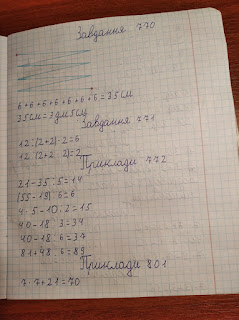 Завдання 770
6+6+6+6+6+6+6=35см
35см=3дм5см
Завдання 771
12:(2+2)·2=6
12:(2+2·2)=2
Приклади 772
21-35:5=14
(55-19):6=6
4·5-10:2=15
40-18:3=34
40-18:6=37
81+48:6=89
Приклади 801
7·7+21=70